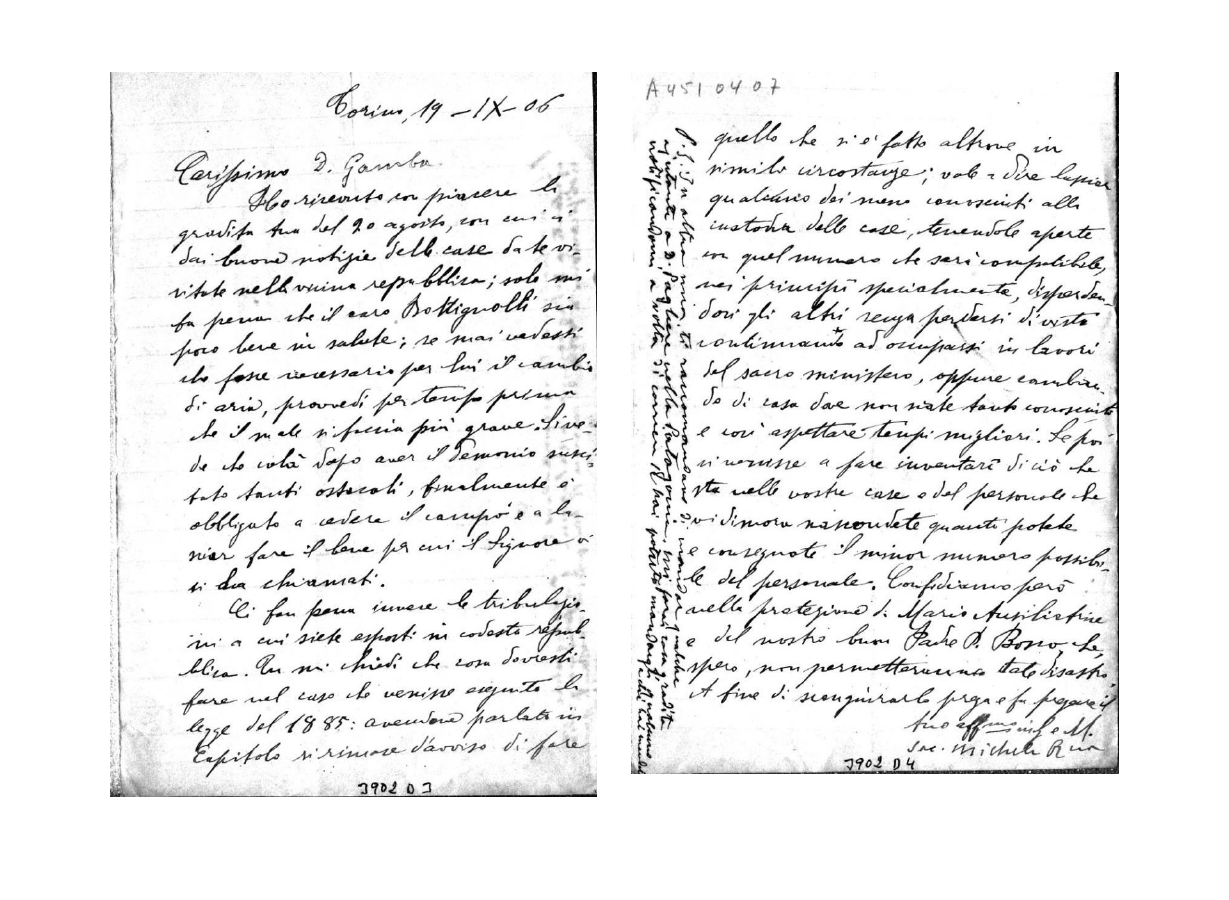 Torino, 19 - IX - 06
Carissimo D. Gamba.
Ho ricevuto con piacere la
gradita tua del 20 agosto, con cui ci
dai buone notizie delle case da te vi-
sitate nella vicina repubblica; solo mi
fa pena che il caro Bottignolli sia
poco bene in salute; se mai vedessi
che fosse necessario per lui il cambio
di aria, provvedi per tempo prima
che il male si faccia più grave. Si ve-
de che colà dopo aver il demonio susci-
tato tanti ostacoli, finalmente è
obbligato a cedere il campo e a la-
sciar fare il bene per cui il Signore ci
si ha chiamati.
Ci fan pena invece le tribolazio-
ni a cui siete esposti in codesta repub-
blica. Tu mi chiedi che cosa dovresti
fare nel caso che venisse eseguita la
legge del 1885: avendone parlato in
Capitolo si rimase d'avviso di fare
3902 D 3
A 451 04 07
quello che si è fatto altrove in
simili circostanze; vale a dire lasciar
qualcuno dei meno conosciuti alla
custodia delle case, tenendole aperte
con quel numero che sarà compatibile,
nei principii specialmente, disperden-
dosi gli altri senza perdersi di vista
continuando ad occuparsi in lavori
del sacro ministero, oppure cambian-
do di casa dove non siate tanto conosciuti
e così aspettare tempi migliori. Se poi
si venisse a fare inventarî di ciò che
sta nelle vostre case e del personale che
vi dimora nascondete quanto potete
e consegnate il minor numero possibi-
le del personale. Confidiamo però
nella protezione di Maria Ausiliatrice
e del nostro buon Padre D. Bosco che,
spero, non permetteranno tale disastro.
A fine di scongiurarlo prega e fa pregare il
tuo aff.mo in G. e M.
Sac. Michele Rua
P. S. In altra mia ti raccomandavo di mandar qualche
aiutante a D. Pagliere nella Patagonia; mi farai cosa gradita
notificandomi a volta di corriere se hai potuto mandargli
3902 D 4